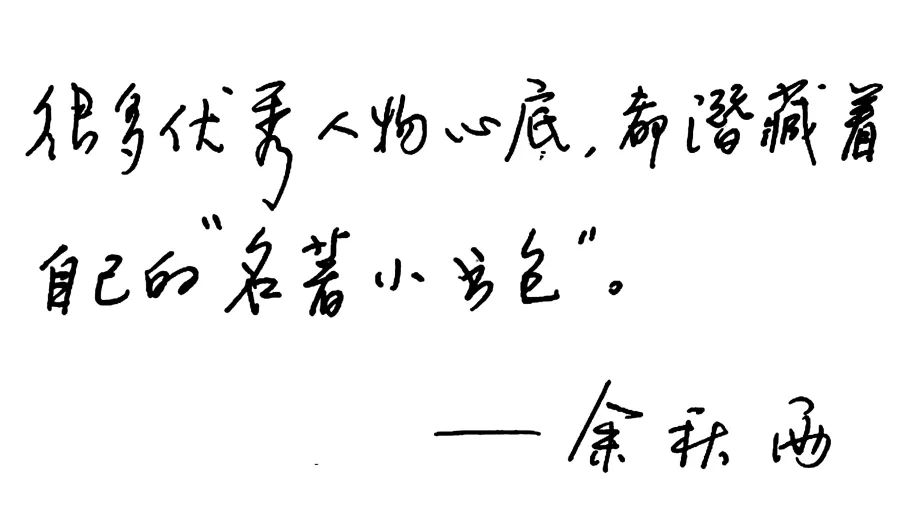 很多优秀人物心底，都潜藏着
自己的“名著小书包”。
——余秋雨